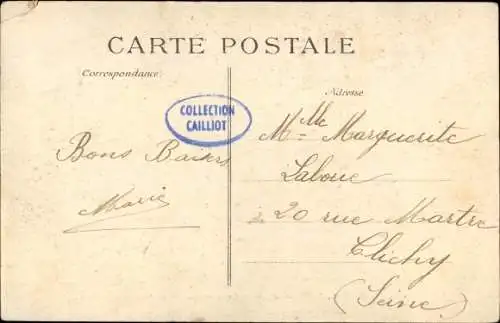 CARTE POSTALE
Correspondance
Adresse
COLLECTION
CAILLIOT
Bons Baisers
Marie
Mlle Marguerite
Laboue
20 rue Martre
Clichy
(Seine)